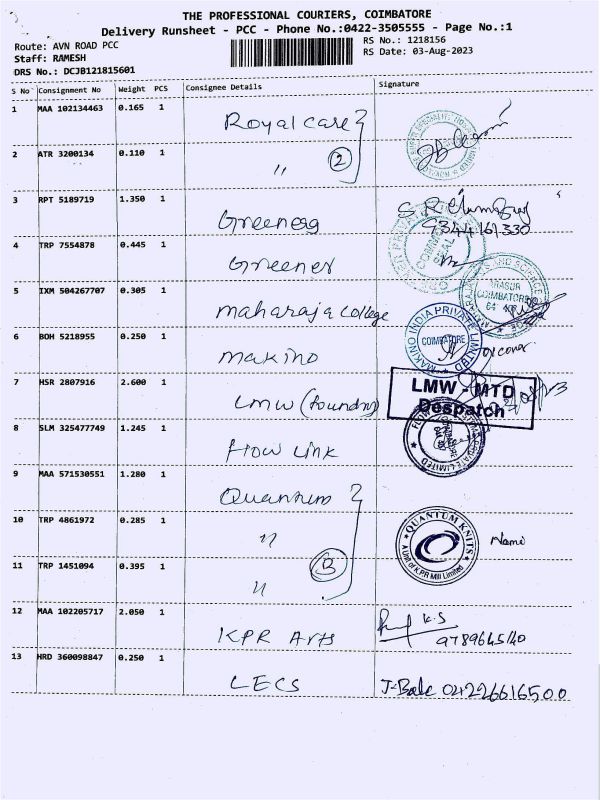 THE PROFESSIONAL COURIERS, COIMBATORE
Delivery Runsheet - PCC - Phone No.:0422-3505555 - Page No.:1
Route: AVN ROAD PCC
RS No.: 1218156
Staff: RAMESH
RS Date: 03-Aug-2023
DRS No.: DCJB121815601
S No Consignment No Weight PCS Consignee Details Signature
1 MAA 102134463 0.165 1 Royal care
2 ATR 3200134 0.110 1 〃 2
3 RPT 5189719 1.350 1 Greenerg S.R
9344161330
4 TRP 7554878 0.445 1 Greener
5 IXM 504267707 0.305 1 maharaja college
COIMBATORE
6 BOH 5218955 0.250 1 makino
MAKINO INDIA PRIVATE LIMITED
COIMBATORE
7 HSR 2807916 2.600 1 LMW (foundry)
LMW - MTD
Despatch
8 SLM 325477749 1.245 1 Flow Link
PRIVATE LIMITED
9 MAA 571530551 1.280 1 Quantum
10 TRP 4861972 0.285 1 〃
QUANTUM KNITS
A Unit of K.P.R Mill Limited
11 TRP 1451094 0.395 1 〃 3
12 MAA 102205717 2.050 1 KPR Arts K.S
9789645140
13 HRD 360098847 0.250 1 LECS J-Bale 04226616500